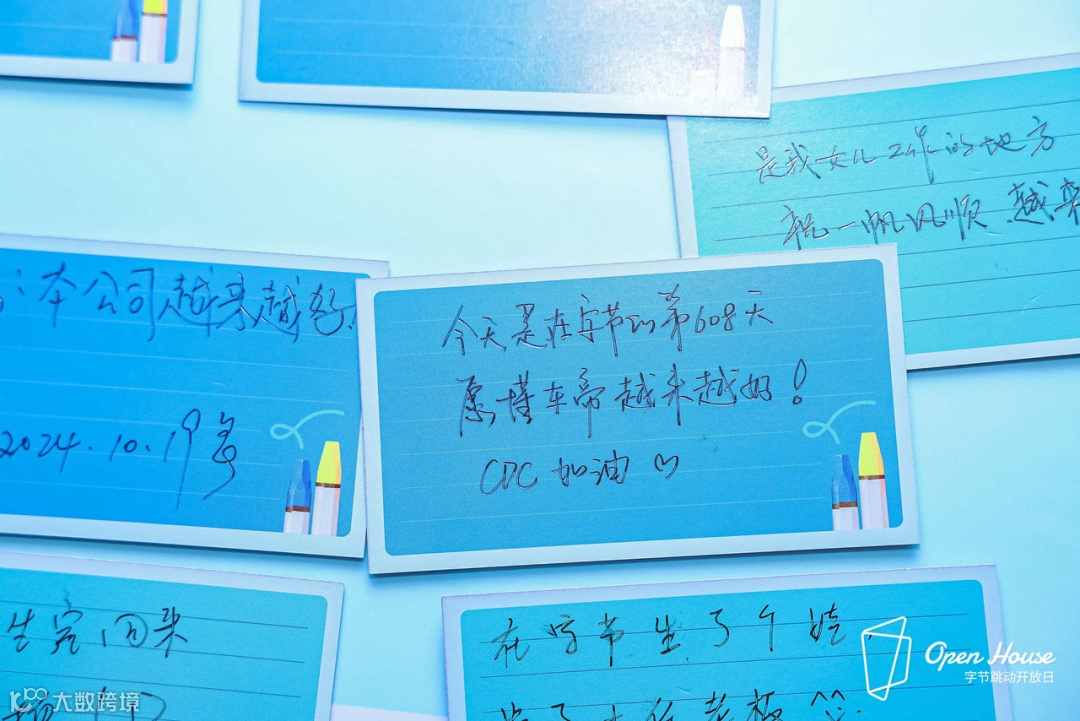 是我女儿工作的地方
祝一帆风顺.越来
本公司越来越好.
2024.10.19号
今天是在字节的第608天
愿懂车帝越来越好!
CDC 加油♡
生完回来
在字节生了个娃
Open House
字节跳动开放日
大数跨境